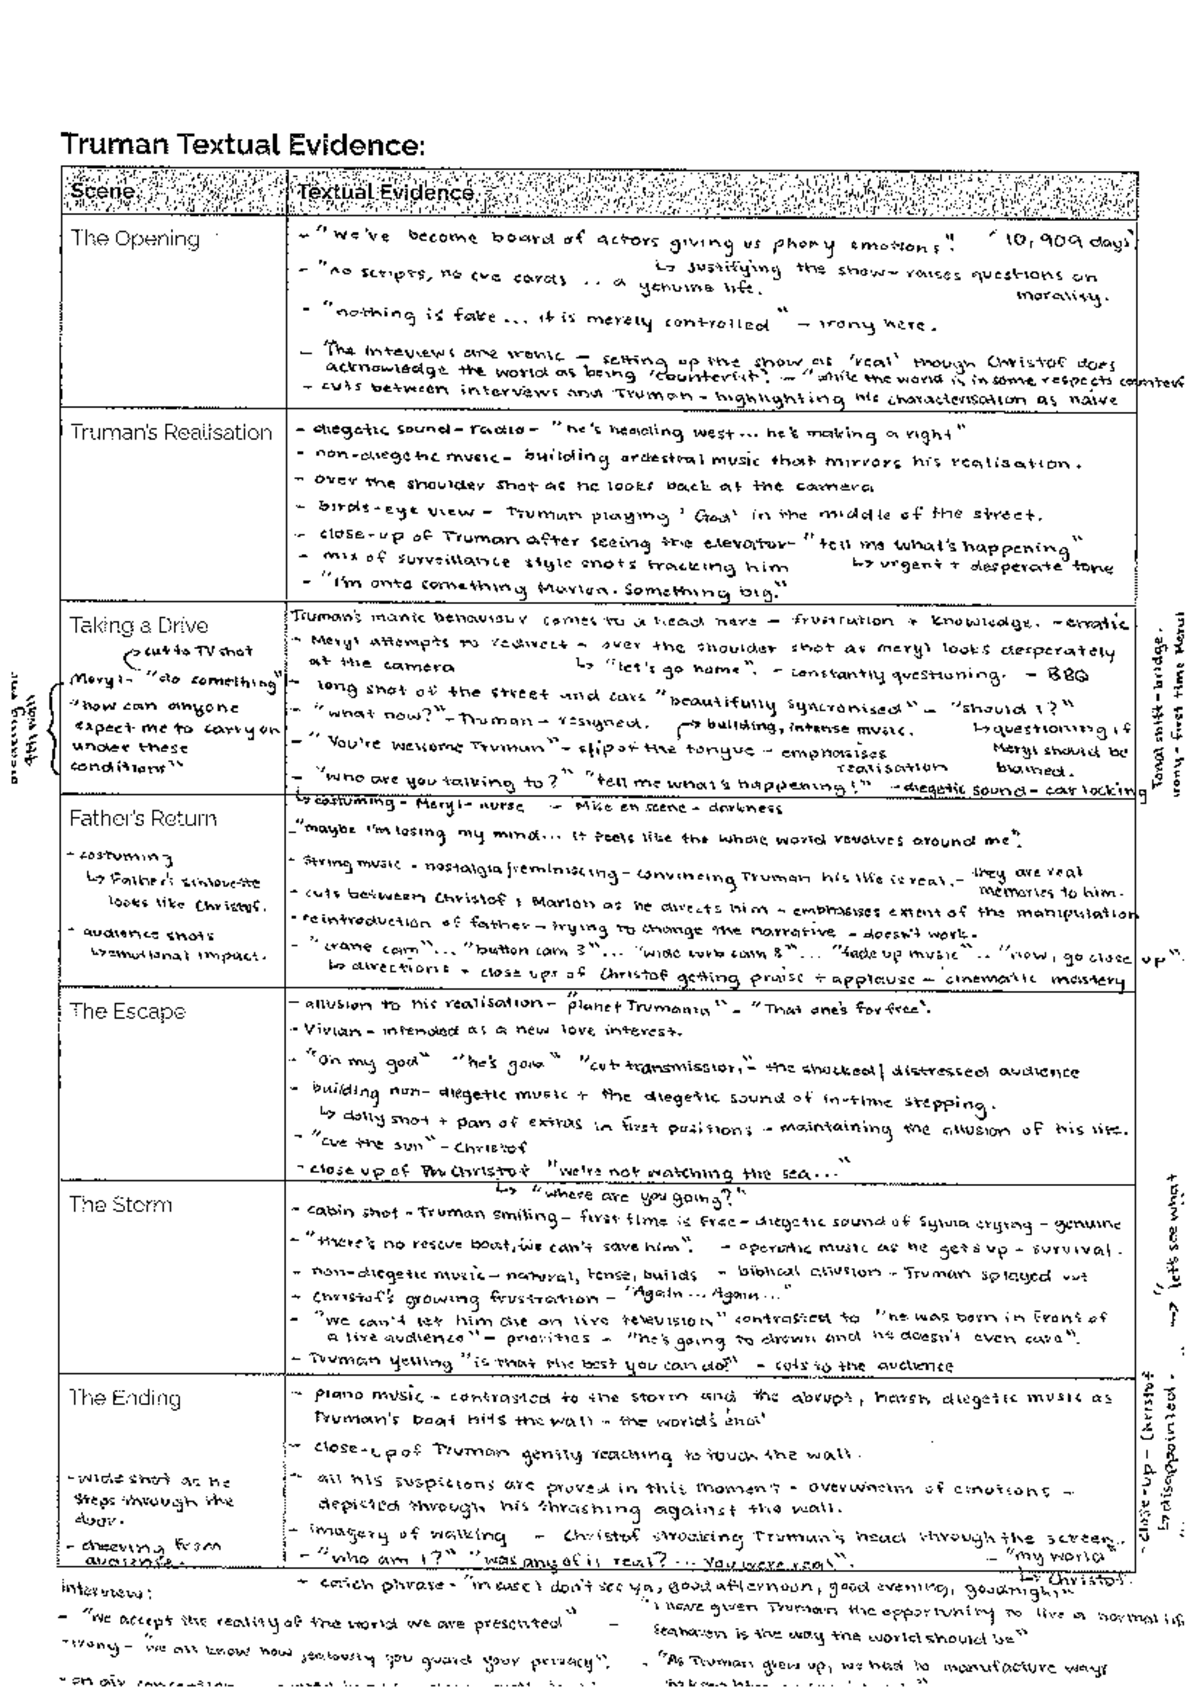 Truman Textual Evidence:
Scene
Textual Evidence
The Opening
- "we've become board of actors giving us phony emotions". '10,909 days'
↳ justifying the show - raises questions on morality.
- "no scripts, no cue cards ... a genuine life.
- "nothing is fake ... it is merely controlled" - irony here.
- The inteviews are ironic - setting up the show as 'real' though Christof does
acknowledge the world as being 'counterfeit'. - "while the world is in some respects counterf
- cuts between interviews and Truman - highlighting his characterisation as naive
Truman's Realisation
- diegetic sound - radio - "he's heading west ... he's making a right"
- non-diegetic music - building orchestral music that mirrors his realisation.
- over the shoulder shot as he looks back at the camera
- birds-eye view - Truman playing 'God' in the middle of the street.
- close-up of Truman after seeing the elevator - "tell me what's happening"
↳ urgent + desperate tone
- mix of surveillance style shots tracking him
- "I'm onto something Marlon. Something big."
Taking a Drive
↷ cut to TV shot
Meryl - "do something"
"how can anyone
expect me to carry on
under these
conditions"
breaking the
4th wall
Truman's manic behaviour comes to a head here - frustration + knowledge. - erratic
- Meryl attempts to redirect - over the shoulder shot as meryl looks desperately
at the camera ↳ "let's go home". - constantly questioning. - BBQ
- long shot of the street and cars "beautifully syncronised" - "should I?"
↳ questioning if
Meryl should be
blamed.
- "what now?" - Truman - resigned. ↱ building, intense music.
- "You're welcome Truman" - slip of the tongue - emphasises
realisation
- "who are you talking to?" "tell me what's happening!" - diegetic sound - car locking
Tonal shift - bridge.
irony - first time Meryl
↳ costuming - Meryl - nurse - Mise en scene - darkness
Father's Return
- costuming
↳ Father's silhouette
looks like Christof.
- audience shots
↳ emotional impact.
- "maybe I'm losing my mind ... it feels like the whole world revolves around me".
- String music - nostalgia/reminiscing - convincing Truman his life is real. - they are real
memories to him.
- cuts between Christof & Marlon as he directs him - emphasises extent of the manipulation
- reintroduction of father - trying to change the narrative - doesn't work.
- "crane cam" ... "button cam 3" ... "wide curb cam 8" ... "fade up music" .. "now, go close up".
↳ directions + close ups of Christof getting praise + applause - cinematic mastery
The Escape
- allusion to his realisation - "planet Trumania" - "That one's for free".
- Vivian - intended as a new love interest.
- "Oh my god" "he's gone" "cut transmission, - the shocked/distressed audience
- building non-diegetic music + the diegetic sound of in-time stepping.
↳ dolly shot + pan of extras in first positions - maintaining the illusion of his life.
- "cue the sun" - Christof
- close up of Christof "we're not watching the sea..."
↳ "where are you going?"
The Storm
- cabin shot - Truman smiling - first time is free - diegetic sound of Sylvia crying - genuine
- "there's no rescue boat, we can't save him". - operatic music as he gets up - survival.
- non-diegetic music - natural, tense, builds - biblical allusion - Truman splayed out
- Christof's growing frustration - "Again ... Again ..."
- "we can't let him die on live television" contrasted to "he was born in front of
a live audience" - priorities - "he's going to drown and he doesn't even care".
- Truman yelling "is that the best you can do?" - cuts to the audience
The Ending
- wide shot as he
steps through the
door.
- cheering from
audience.
- piano music - contrasted to the storm and the abrupt, harsh diegetic music as
Truman's boat hits the wall - the world's 'end'
- close-up of Truman gently reaching to touch the wall.
- all his suspicions are proved in this moment - overwhelm of emotions -
depicted through his thrashing against the wall.
- imagery of walking - Christof stroking Truman's head through the screen.
- "who am I?" "was any of it real? ... You were real". - "my world"
↳ Christof.
- close-up - Christof
↳ disappointed - → "let's see what
- catch phrase - "in case I don't see ya, good afternoon, good evening, goodnight"
interview:
- "we accept the reality of the world we are presented"
- irony - "we all know how jealously you guard your privacy".
- on air conception
- "I have given Truman the opportunity to live a normal life
Seahaven is the way the world should be"
- "As Truman grew up, we had to manufacture ways